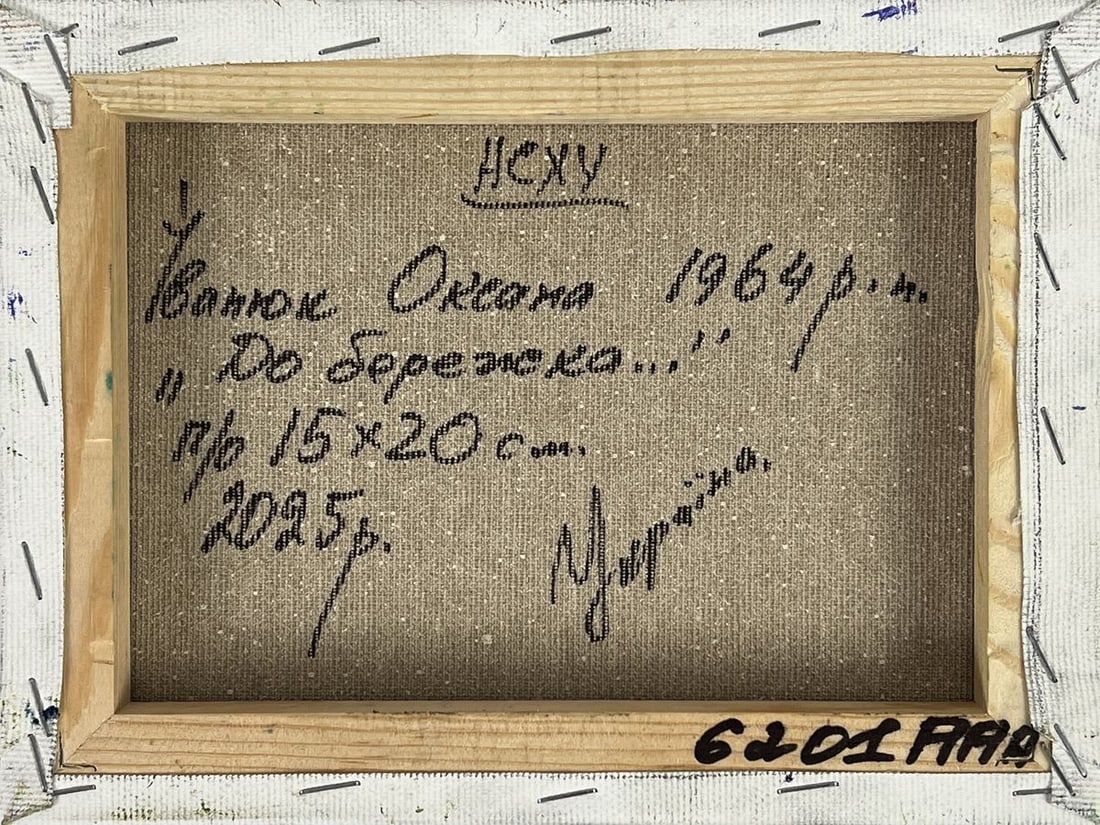 НСХУ
Іванюк Оксана 1964 р.н.
„До бережка..."
п/о 15×20 см.
2025р.
Україна.
6201 AAA